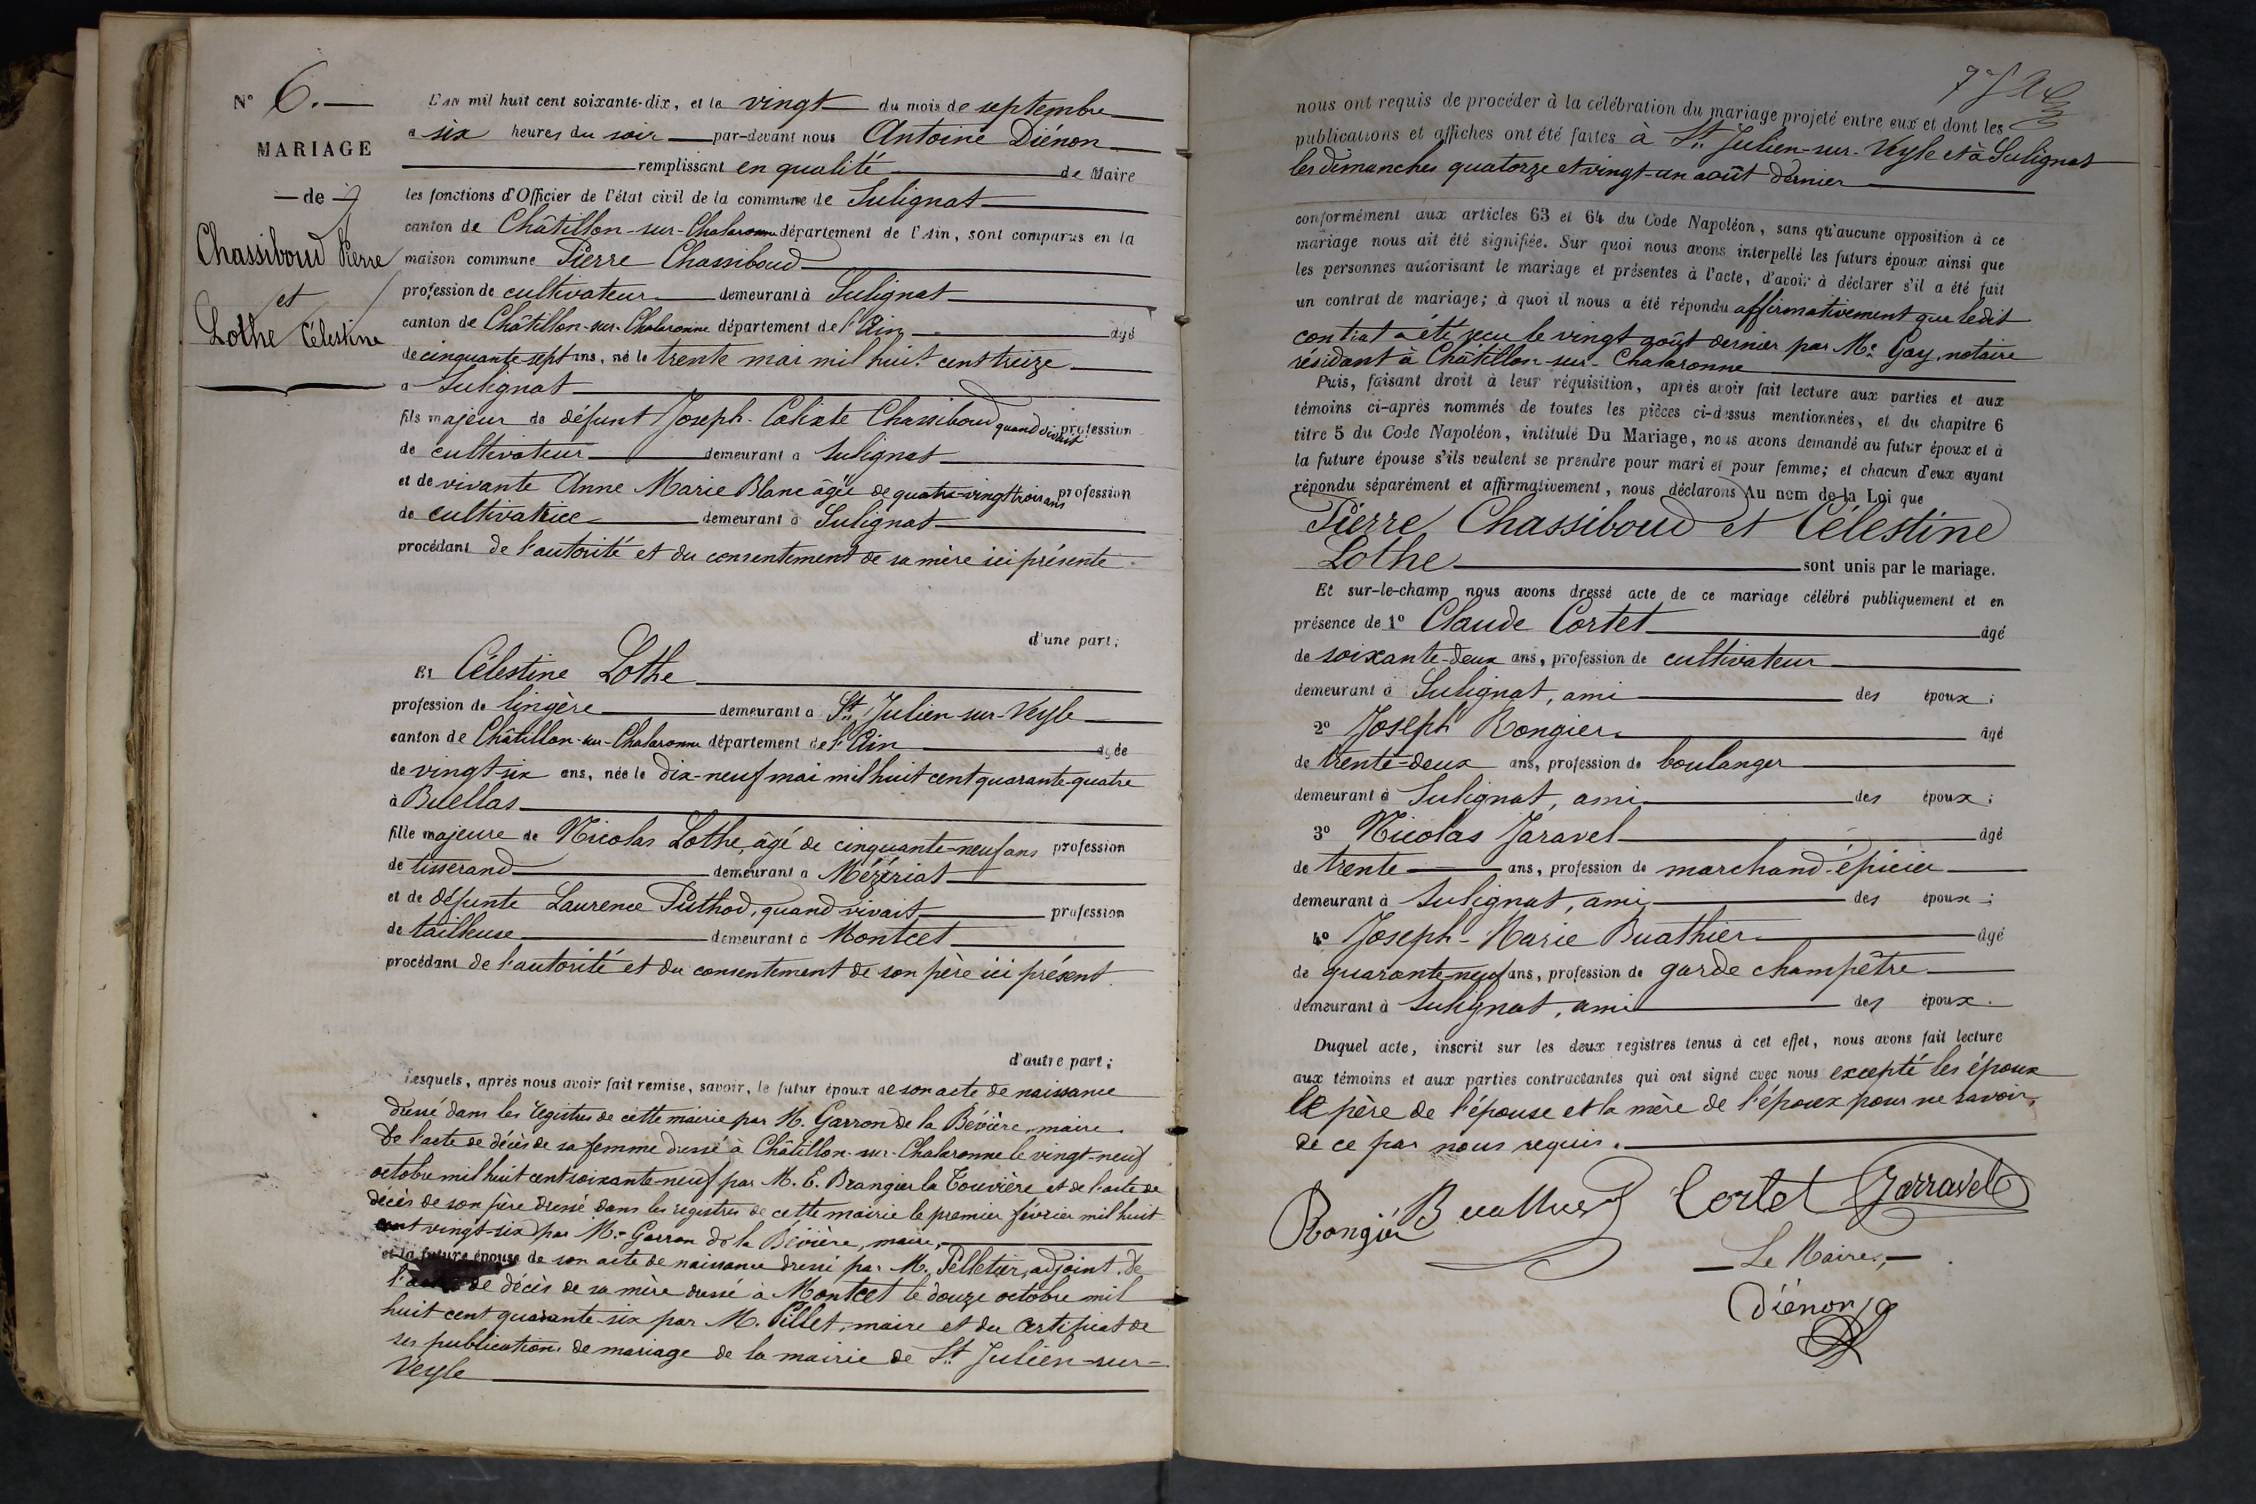 N° 6.
MARIAGE
de
Chassiboud Pierre
et
Lothe Célestine
L'an mil huit cent soixante-dix, et le vingt du mois de septembre
a six heures du soir par-devant nous Antoine Diénon
remplissant en qualité de Maire
les fonctions d'Officier de l'état civil de la commune de Sulignat
canton de Châtillon-sur-Chalaronne département de l'Ain, sont comparus en la
maison commune Pierre Chassiboud
profession de cultivateur demeurant à Sulignat
canton de Châtillon-sur-Chalaronne département de l'Ain âgé
de cinquante sept ans, né le trente mai mil huit cent treize
a Sulignat
fils majeur de défunt Joseph-Calixte Chassiboud quand vivait profession
de cultivateur demeurant a Sulignat
et de vivante Anne Marie Blanc âgée de quatre-vingt trois ans profession
de cultivatrice demeurant à Sulignat
procédant de l'autorité et du consentement de sa mère ici présente
d'une part;
Et Célestine Lothe
profession de lingère demeurant a St Julien-sur-Veyle
canton de Châtillon-sur-Chalaronne département de l'Ain âgée
de vingt-six ans, née le dix-neuf mai mil huit cent quarante-quatre
à Buellas
fille majeure de Nicolas Lothe, âgé de cinquante-neuf ans profession
de tisserand demeurant a Mézériat
et de défunte Laurence Puthod, quand vivait profession
de tailleuse demeurant à Montcet
procédant de l'autorité et du consentement de son père ici présent.
d'autre part;
Lesquels, après nous avoir fait remise, savoir, le futur époux de son acte de naissance
dressé dans les registres de cette mairie par M. Garron de la Bévière, maire.
De l'acte de décès de sa femme dressé à Châtillon-sur-Chalaronne le vingt-neuf
octobre mil huit cent soixante-neuf par M. E. Brangier la Touvière et de l'acte de
décès de son père dressé dans les registres de cette mairie le premier février mil huit
cent vingt-six par Mr Garron de la Bévière, maire,
et la future épouse de son acte de naissance dressé par M. Pelletier, adjoint. De
l'acte de décès de sa mère dressé à Montcet le douze octobre mil
huit cent quarante-six par M. Pillet, maire et du certificat de
ses publications de mariage de la mairie de St Julien-sur-
Veyle
nous ont requis de procéder à la célébration du mariage projeté entre eux et dont les
publications et affiches ont été faites à St Julien-sur-Veyle et à Sulignat
les dimanches quatorze et vingt-un août dernier
conformément aux articles 63 et 64 du Code Napoléon, sans qu'aucune opposition à ce
mariage nous ait été signifiée. Sur quoi nous avons interpellé les futurs époux ainsi que
les personnes autorisant le mariage et présentes à l'acte, d'avoir à déclarer s'il a été fait
un contrat de mariage; à quoi il nous a été répondu affirmativement que ledit
contrat a été reçu le vingt août dernier par Me Gay, notaire
résidant à Châtillon-sur-Chalaronne
Puis, faisant droit à leur réquisition, après avoir fait lecture aux parties et aux
témoins ci-après nommés de toutes les pièces ci-dessus mentionnées, et du chapitre 6
titre 5 du Code Napoléon, intitulé Du Mariage, nous avons demandé au futur époux et à
la future épouse s'ils veulent se prendre pour mari et pour femme; et chacun d'eux ayant
répondu séparément et affirmativement, nous déclarons Au nom de la Loi que
Pierre Chassiboud et Célestine
Lothe sont unis par le mariage.
Et sur-le-champ nous avons dressé acte de ce mariage célébré publiquement et en
présence de 1° Claude Cortet âgé
de soixante-deux ans, profession de cultivateur
demeurant à Sulignat, ami des époux;
2° Joseph Rongier âgé
de trente-deux ans, profession de boulanger
demeurant à Sulignat, ami des époux;
3° Nicolas Jaravel âgé
de trente ans, profession de marchand-épicier
demeurant à Sulignat, ami des époux;
4° Joseph-Marie Buathier âgé
de quarante-neuf ans, profession de garde champêtre
demeurant à Sulignat, ami des époux.
Duquel acte, inscrit sur les deux registres tenus à cet effet, nous avons fait lecture
aux témoins et aux parties contractantes qui ont signé avec nous excepté les époux
le père de l'épouse et la mère de l'époux pour ne savoir,
de ce par nous requis.
Rongier Buathier Cortet Jarravel
Le Maire,
Diénon